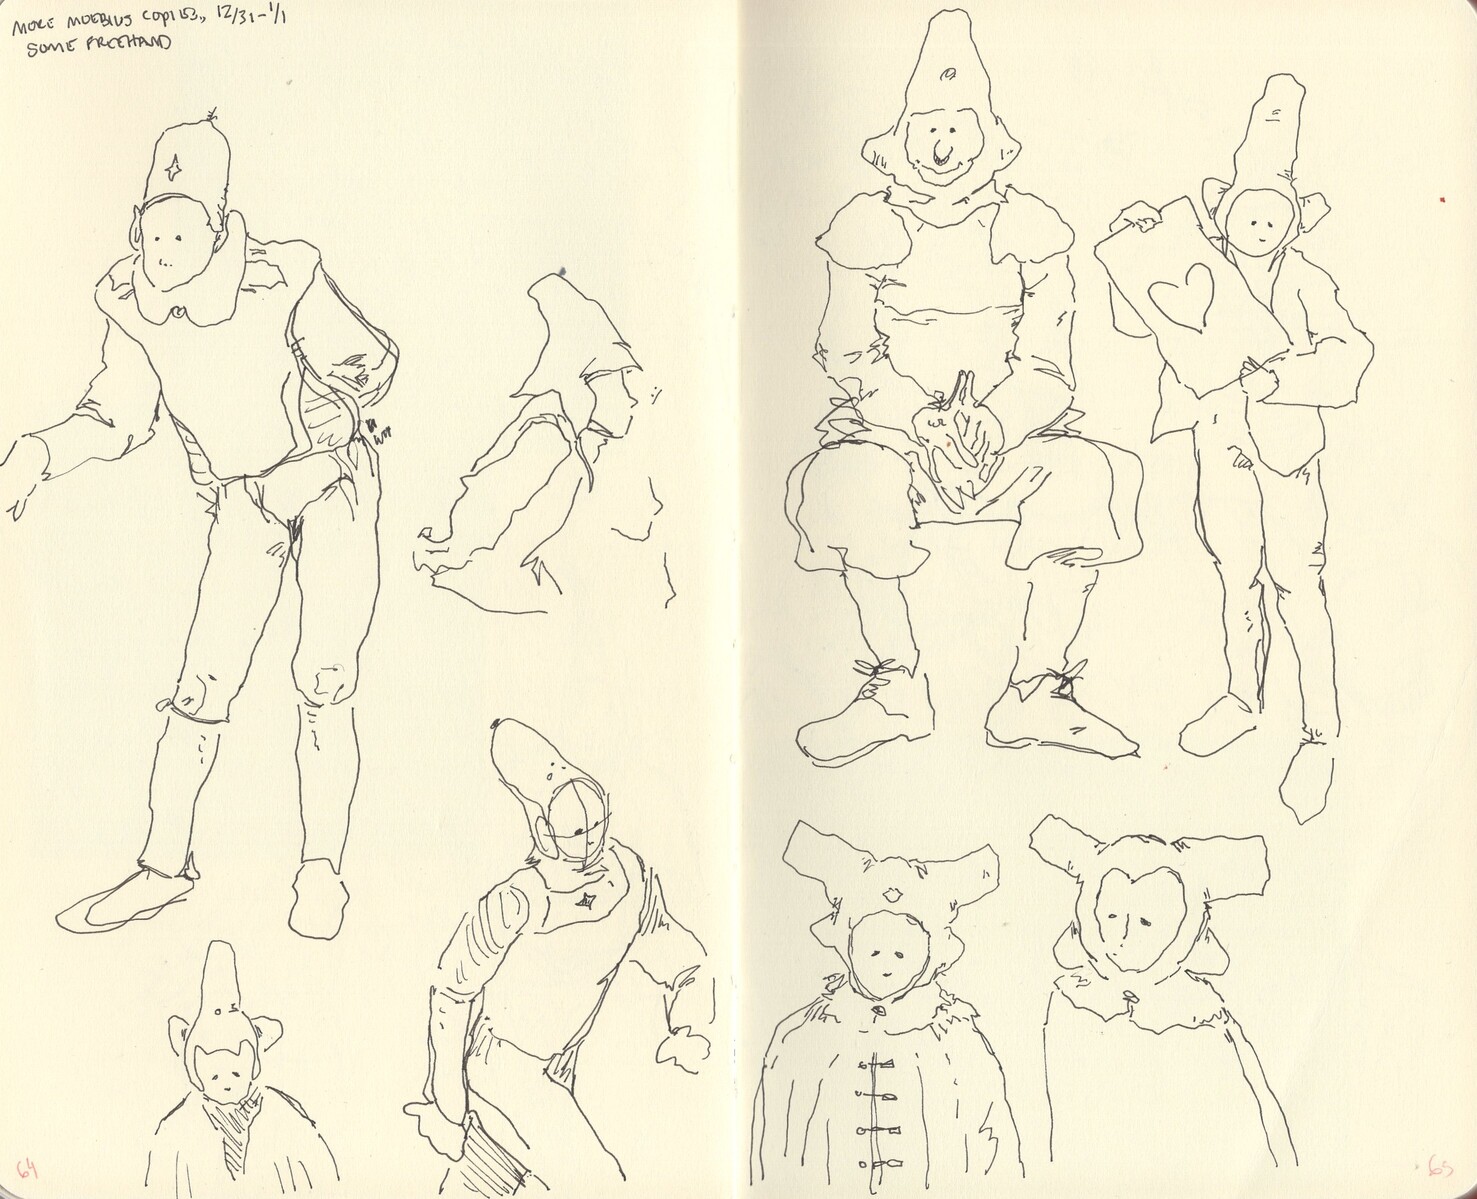 MORE MOEBIUS COPIES, 12/31-1/1
SOME FREEHAND
64
65